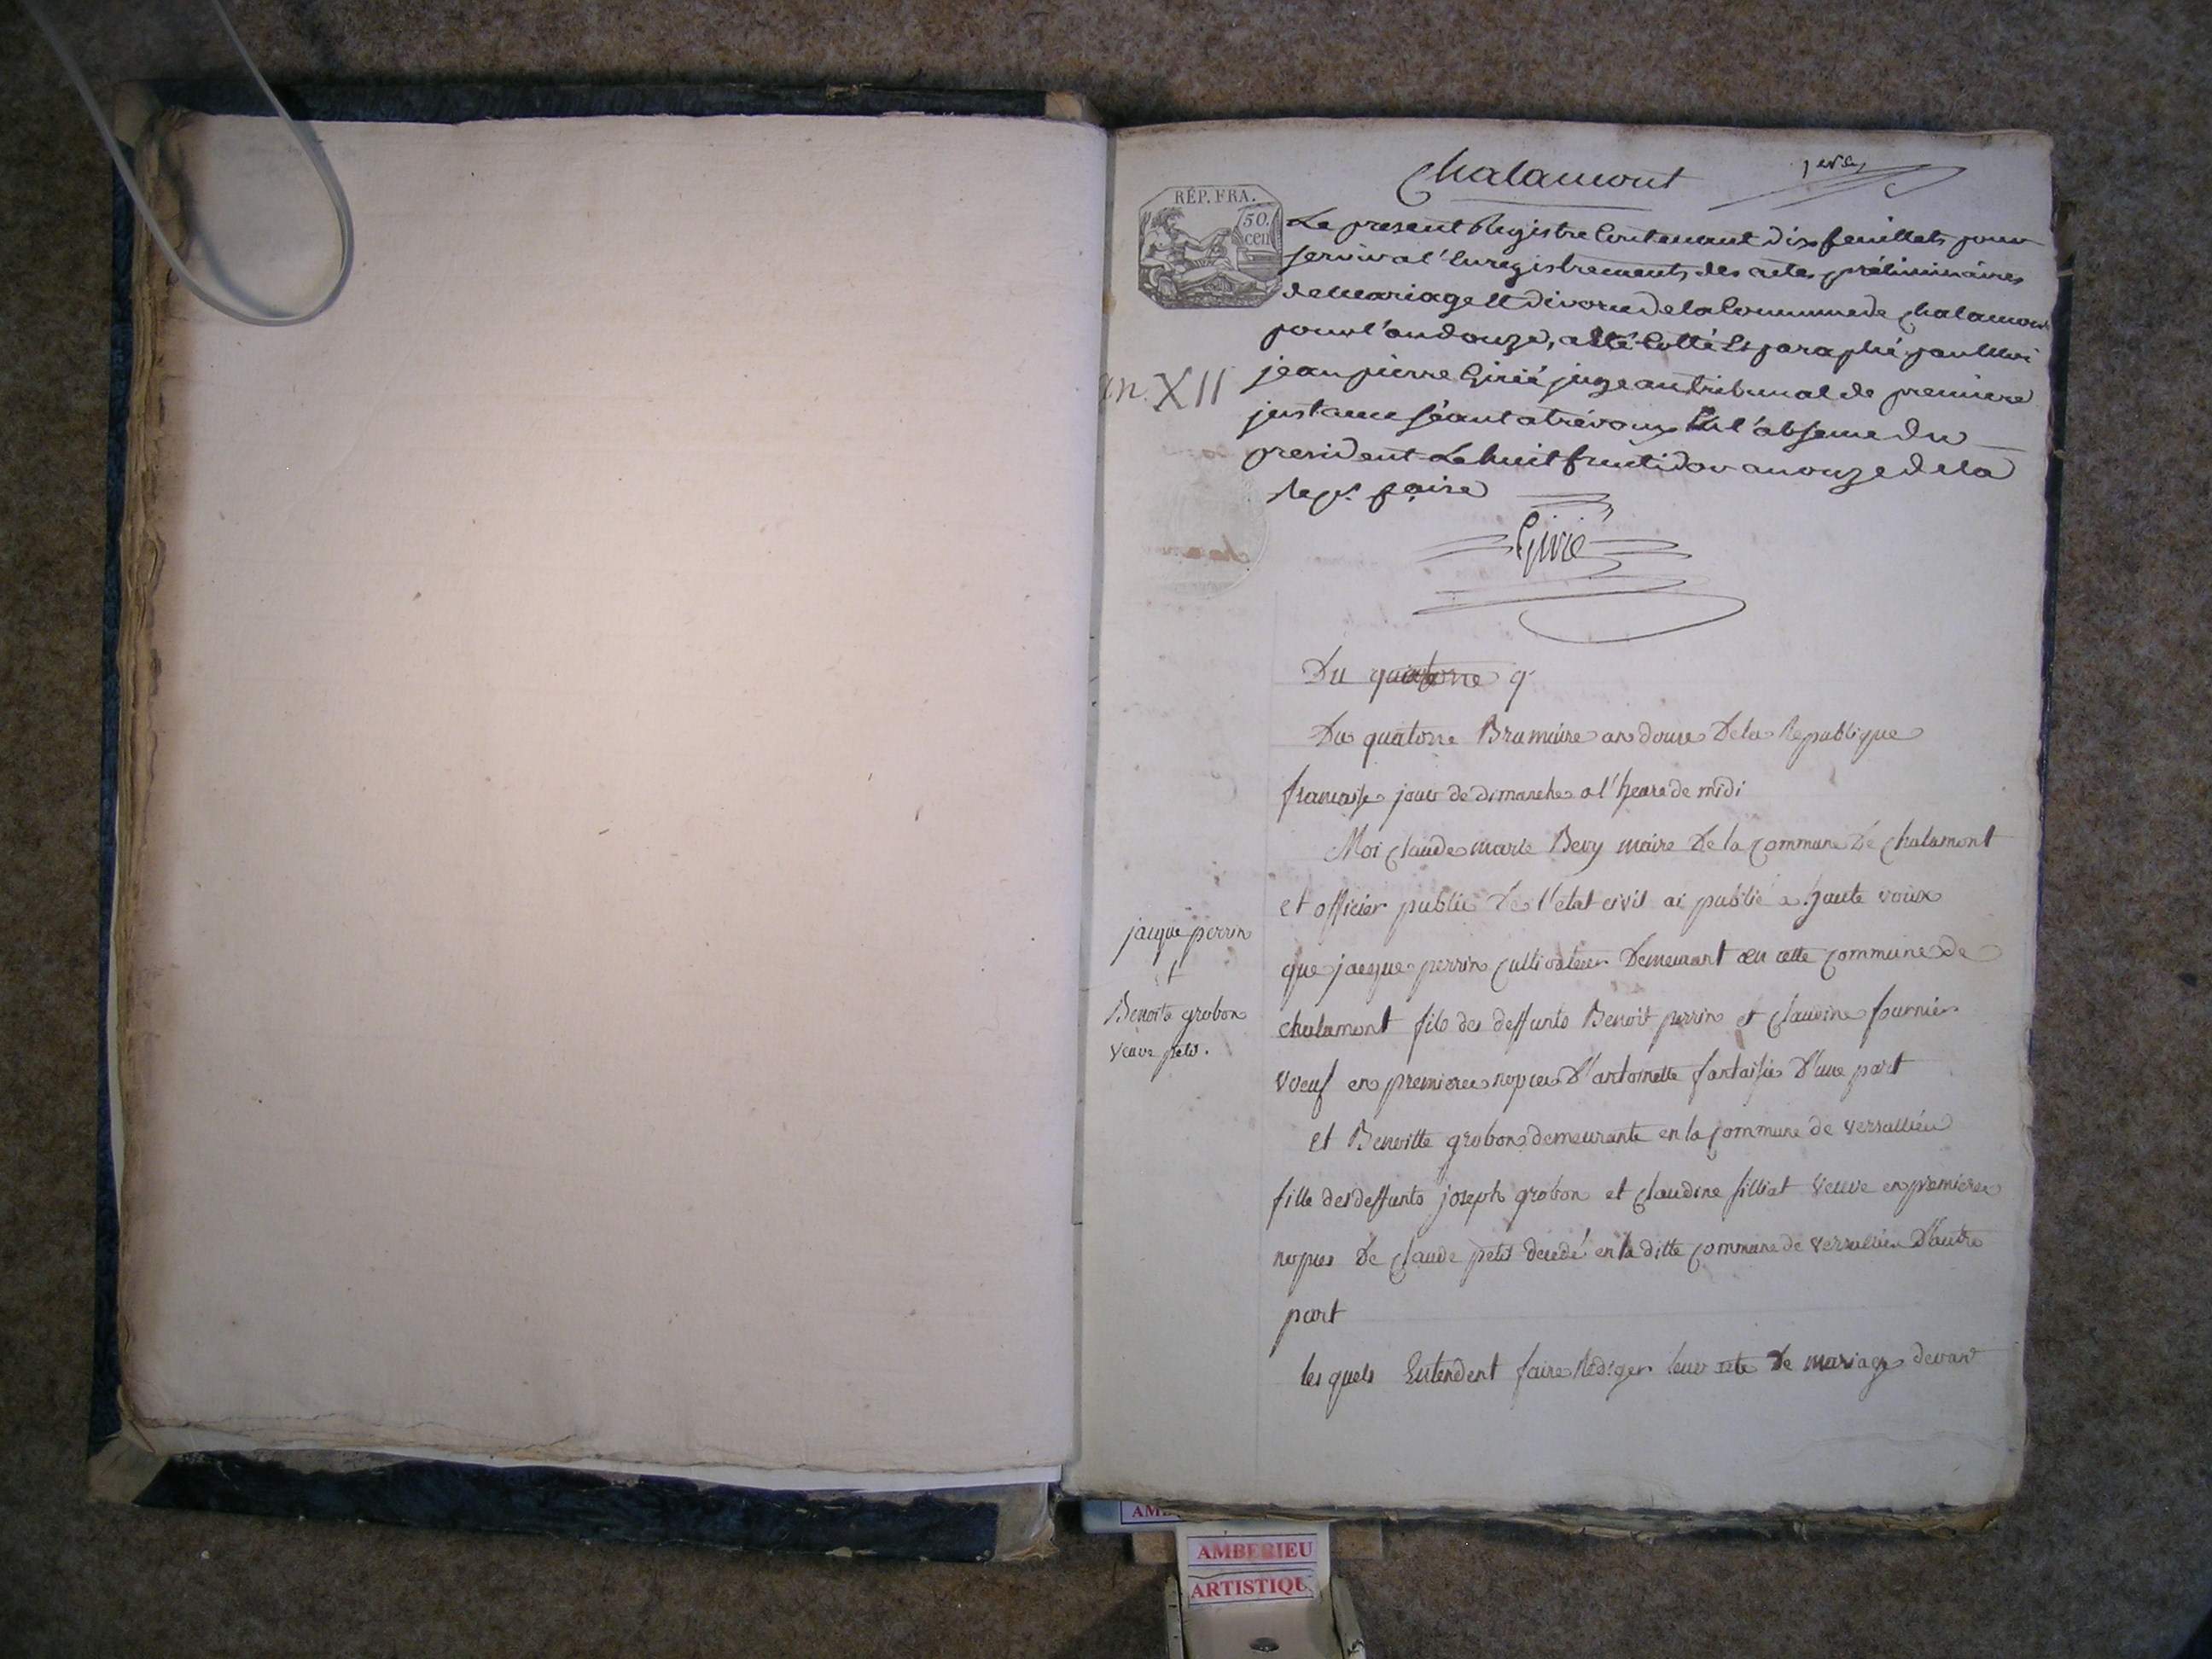 Chalamont
RÉP. FRA.
50.
cen
Le present Registre Contenant dix feuillets pour
servir a l'Enregistrements des actes préliminaires
de Mariage Et divorce de la Commune de Chalamont
pour l'an douze, a Eté Cotté Et paraphé par Moi
jean pierre Girié juge au tribunal de premiere
jnstance séant a trévoux En l'absence du
president Le huit fructidor an onze de la
Rep.
an XII
Girié
Du quatorze q
Du quatorze Brumaire an douze De la Republique
francaise jour de dimanche a l'heure de midi
Moi Claude marie Bevy maire De la Commune De Chalamont
et officier public De l'etat civil ai publié a haute voix
que jacque perrin Cultivateur Demeurant en cette Commune de
chalamont fils des deffunts Benoit perrin et Claudine fournier
Voeuf en premieres nopces D'antoinette fantaisie D'une part
jacque perrin
Benoite grobon
veuve petit.
et Benoitte grobon demeurante en la Commune de versallieu
fille des deffunts joseph grobon et Claudine filliat veuve en premieres
nopces De Claude petit decedé en la ditte Commune de versallieu D'autre
part
les quels Entendent faire Rédiger leur acte De mariage devant
AMBERIEU
ARTISTIQU